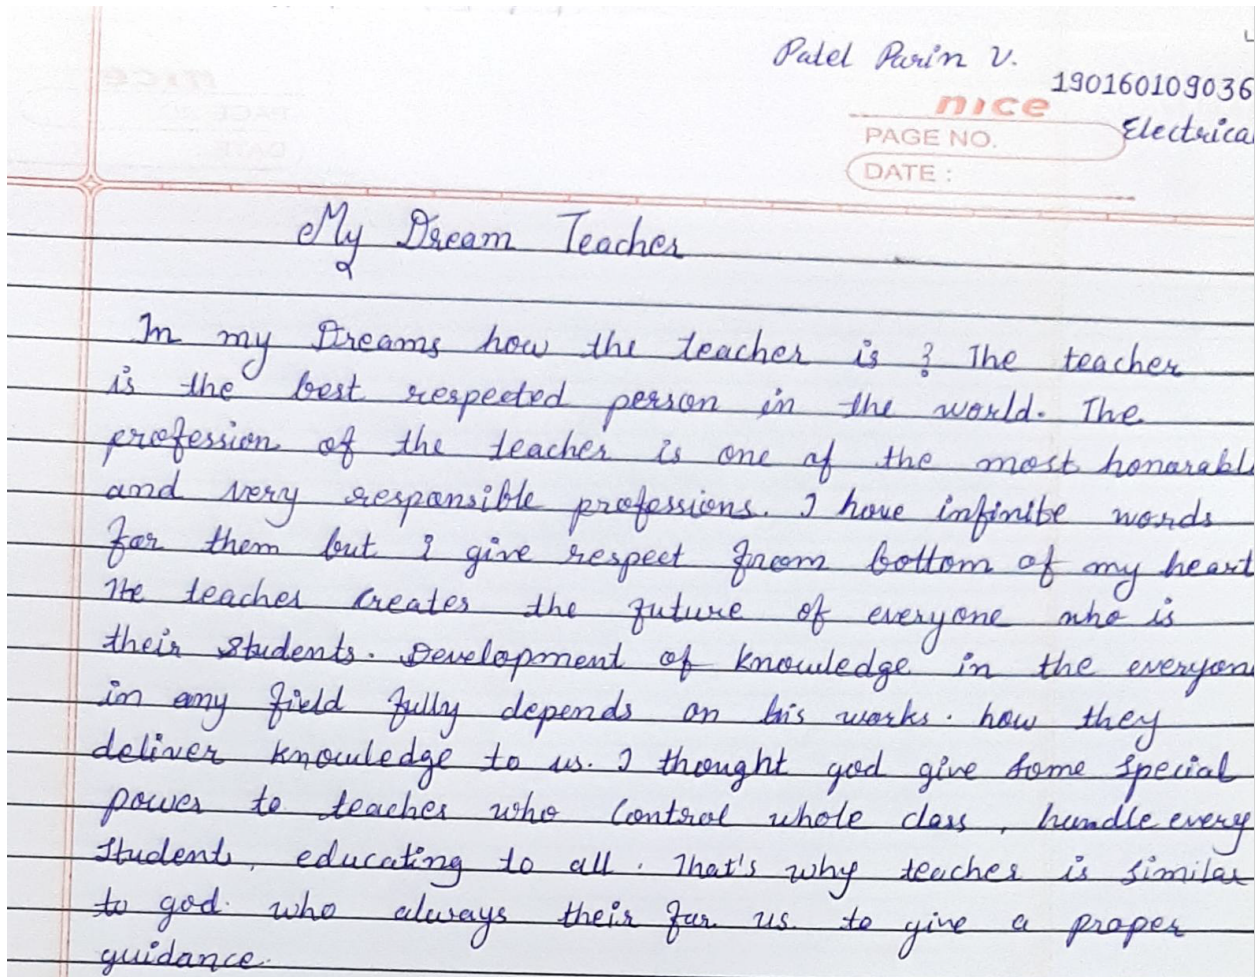 Patel Parin V.
190160109036
nice
PAGE NO.
Electrica
DATE :
My Dream Teacher
In my Dreams how the teacher is ? The teacher
is the best respected person in the world. The
profession of the teacher is one of the most honarabl
and very responsible professions. I have infinite words
for them but I give respect from bottom of my heart
The teacher creates the future of everyone who is
their students. Development of knowledge in the everyon
in any field fully depends on his works. how they
deliver knowledge to us. I thought god give some special
power to teacher who control whole class, hundle every
student, educating to all. That's why teacher is similar
to god. who always their for us to give a proper
guidance.